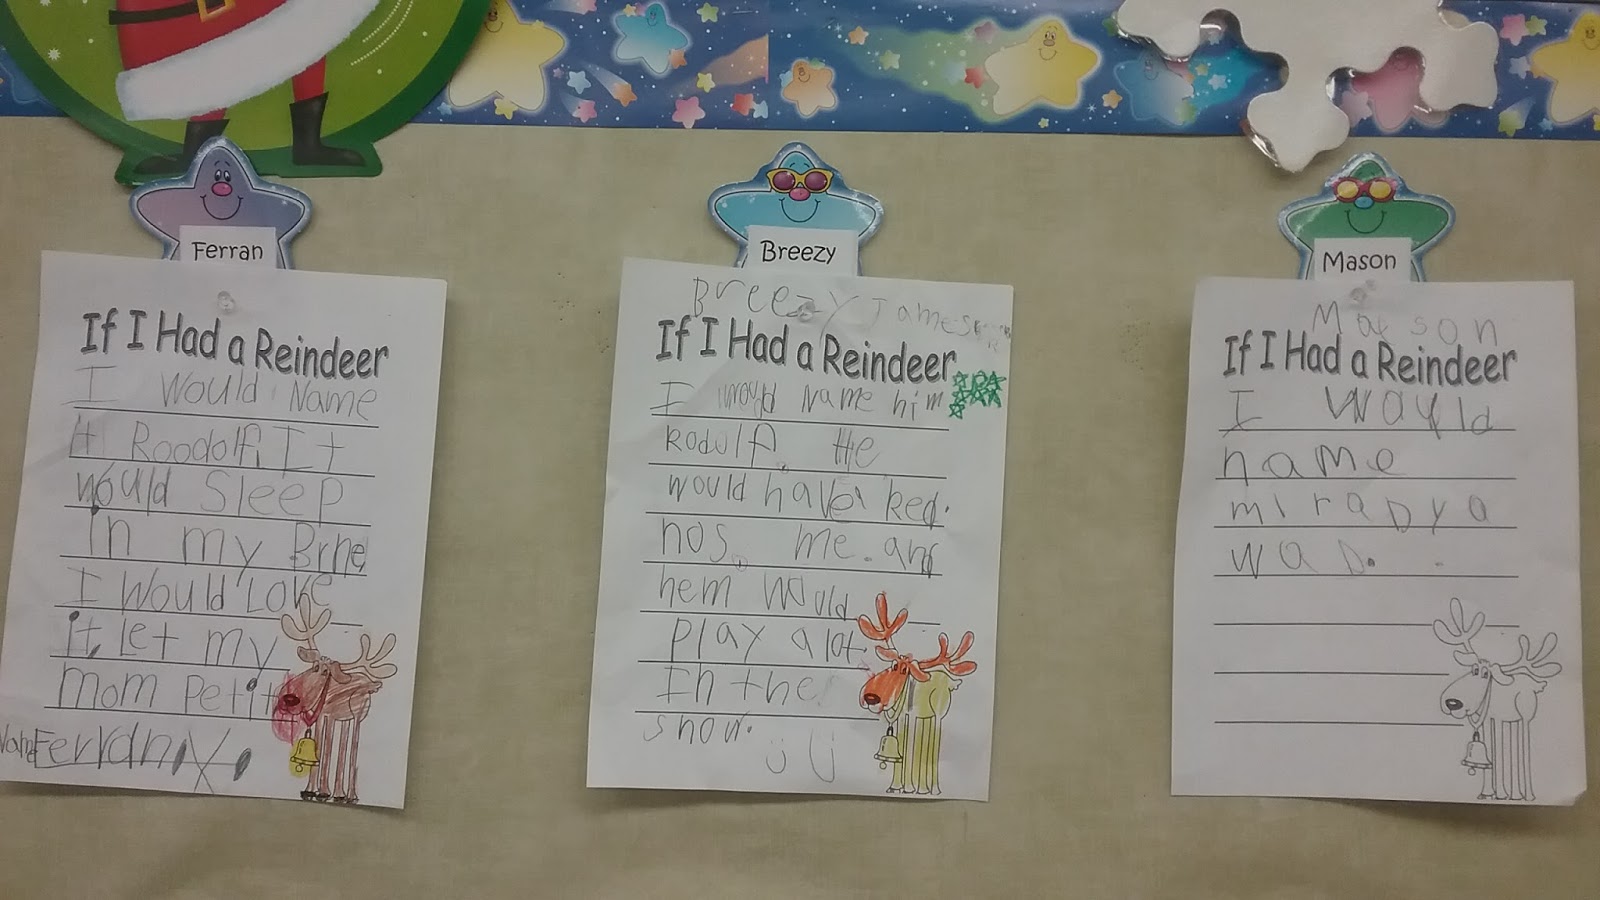 Ferran
If I Had a Reindeer
I would Name
it Roodolf. It
would Sleep
in my Brne
I would Love
it. Let my
mom Petit
Name Ferran
Breezy
Breezy James
If I Had a Reindeer
I would Name him
Rodulf. He
would have a Red.
nos. me. and
hem would
Play a lot.
In the
snow.
Mason
Mason
If I Had a Reindeer
I would
name